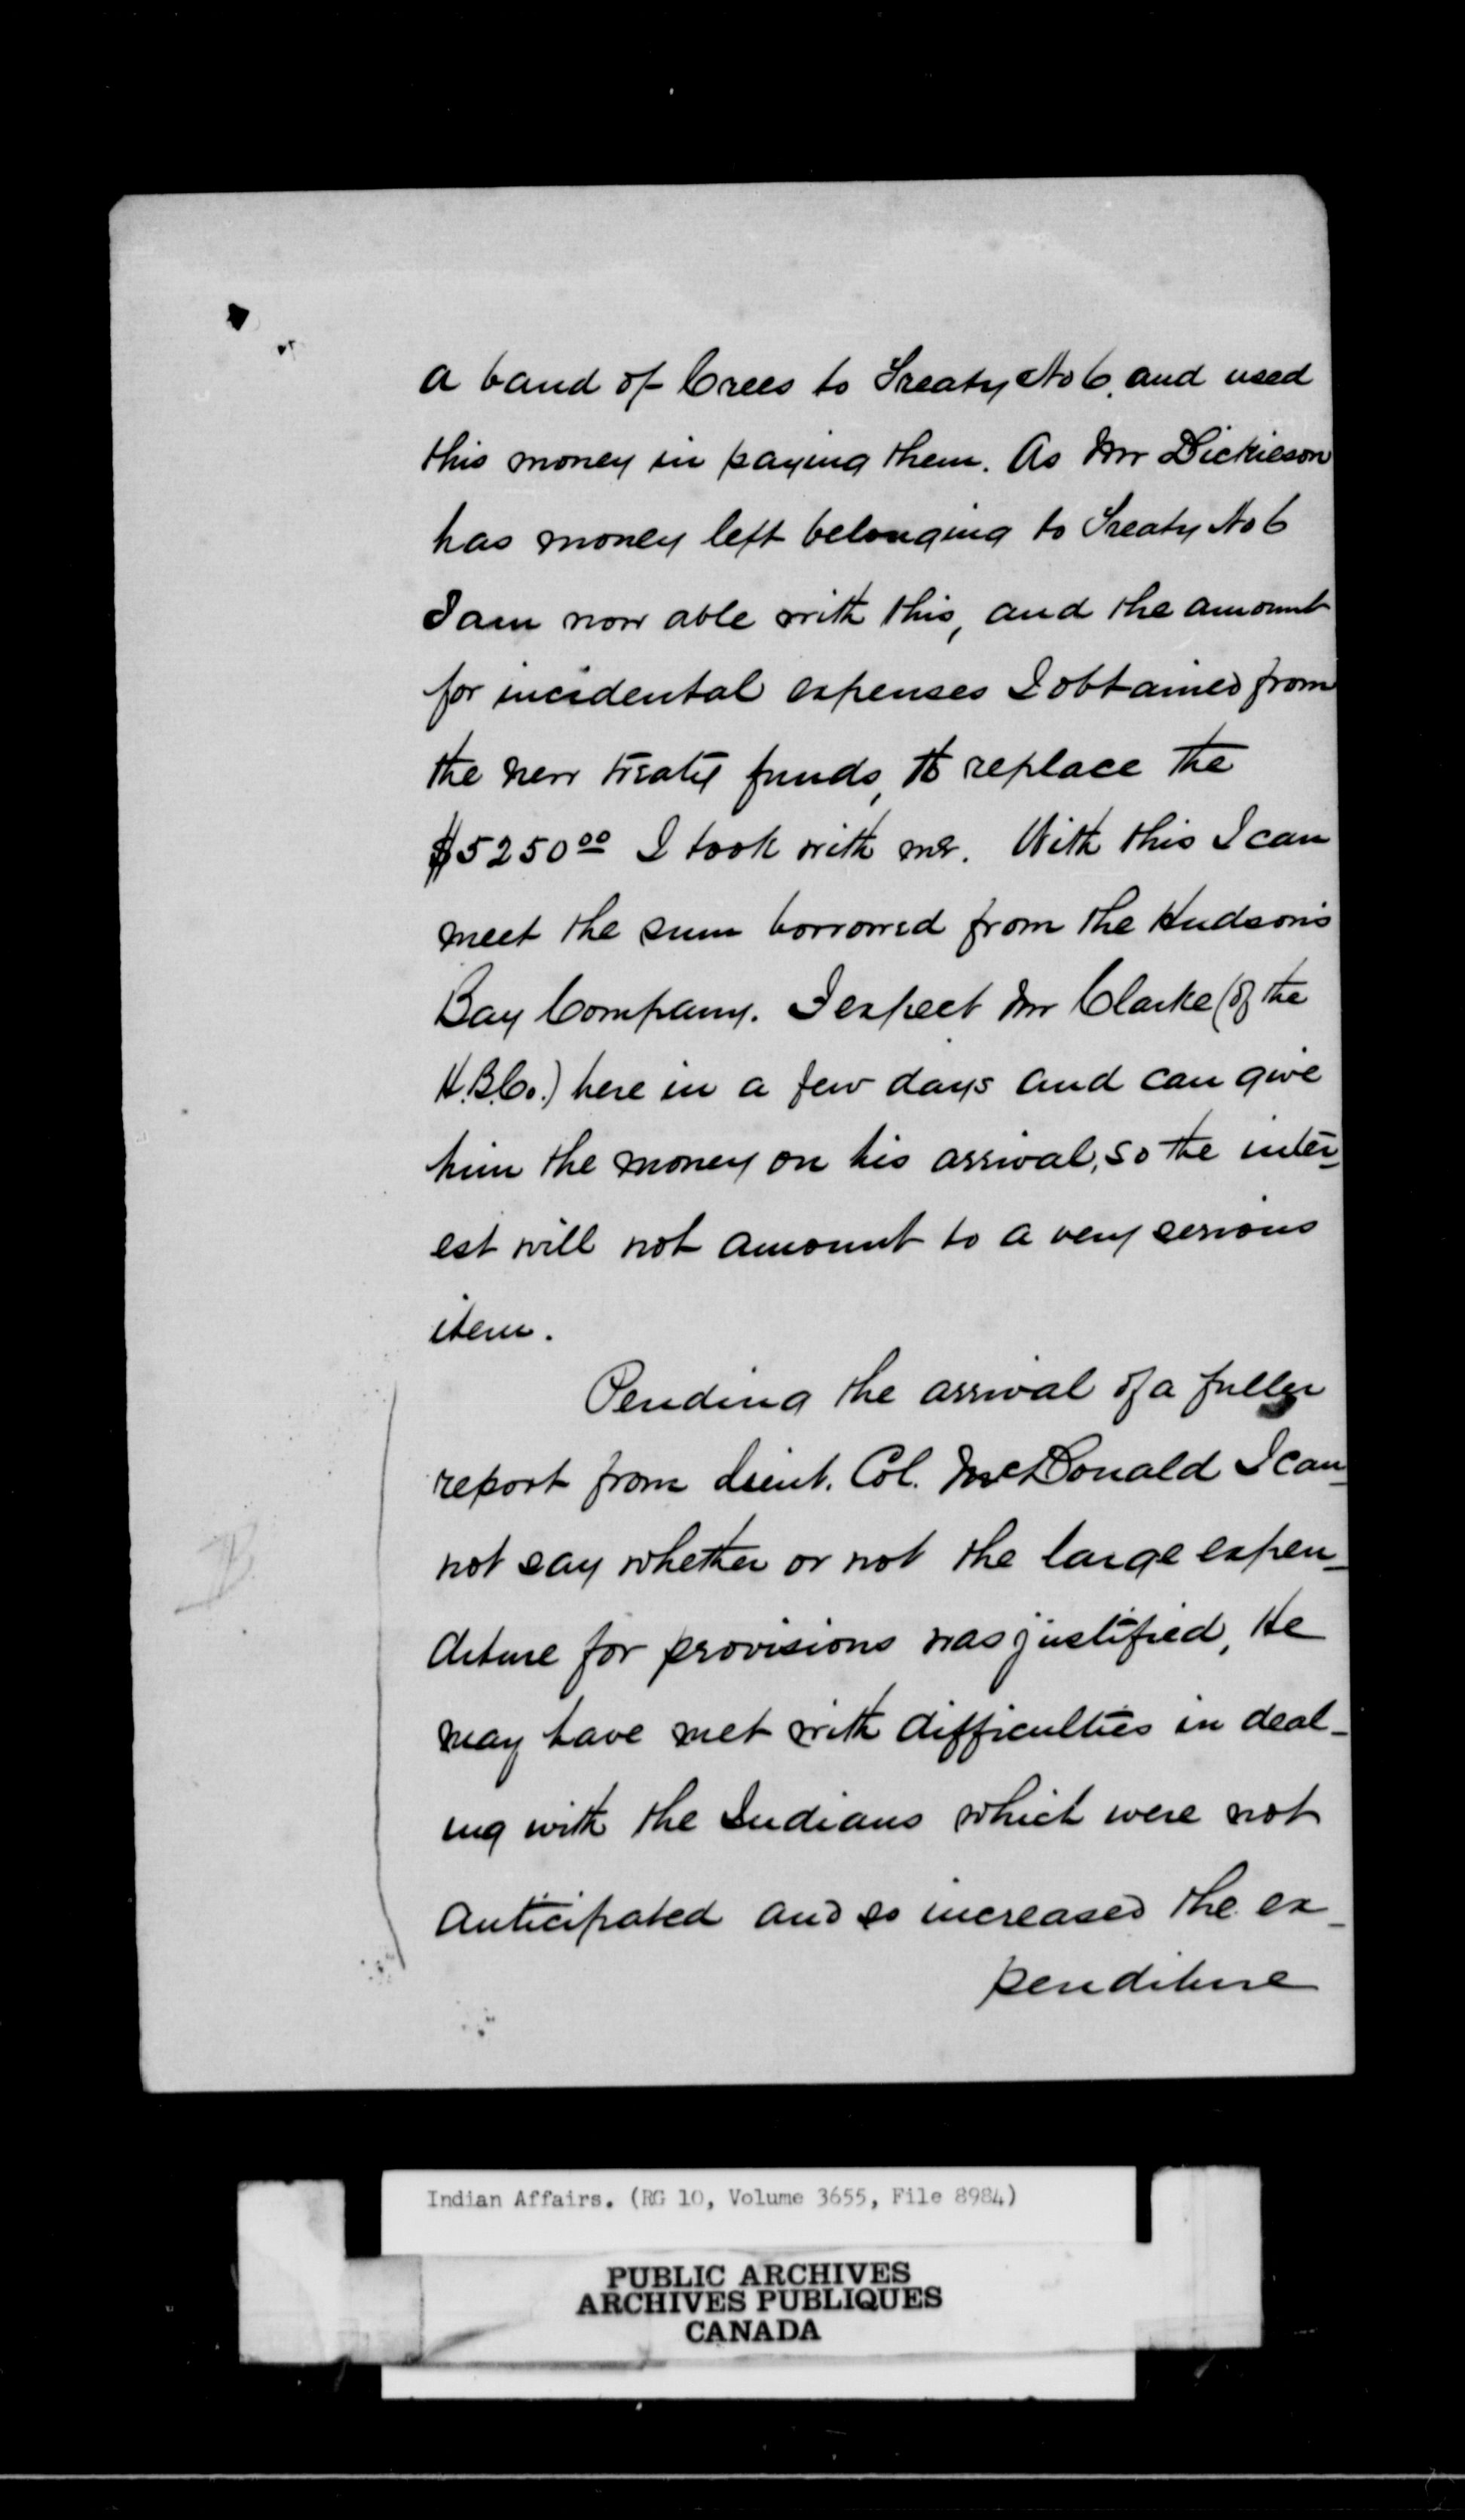 a band of Crees to Treaty No 6. and used
this money in paying them. As Mr Dickieson
has money left belonging to Treaty No 6
I am now able with this, and the amount
for incidental expenses I obtained from
the new treaty funds, to replace the
$5250.00 I took with me. With this I can
meet the sum borrowed from the Hudson's
Bay Company. I expect Mr Clarke (of the
H.B.Co.) here in a few days and can give
him the money on his arrival, so the inter-
est will not amount to a very serious
item.
Pending the arrival of a fuller
report from Lieut. Col. McDonald I can-
not say whether or not the large expen-
diture for provisions was justified, He
may have met with difficulties in deal-
ing with the Indians which were not
anticipated and so increased the ex-
penditure
Indian Affairs. (RG 10, Volume 3655, File 8984)
PUBLIC ARCHIVES
ARCHIVES PUBLIQUES
CANADA